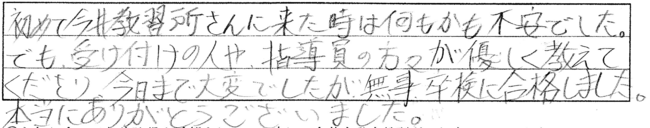 初めて今井教習所さんに来た時は何もかも不安でした。
でも、受け付けの人や、指導員の方々が優しく教えて
くださり、今日まで大変でしたが無事卒検に合格しました。
本当にありがとうございました。